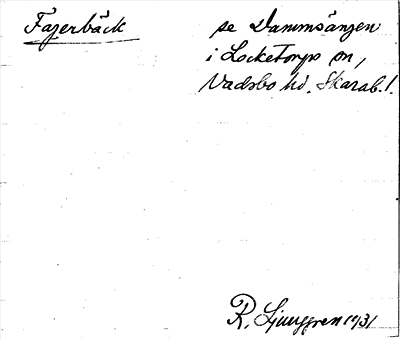 Fagerbäck
se Dammsängen
i Locketorps sn,
Vadsbo hd. Skarab. l.
R. Ljunggren 1931